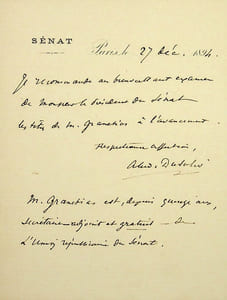 SÉNAT
Paris, le 27 déc. 1894.
Je recommande au bienveillant examen
de Monsieur le Président du Sénat
les titres de M. à l'avancement.
Respectueuse affection,
M. est, depuis quinze ans,
secrétaire adjoint et gratuit — de
L'Union républicaine du Sénat.